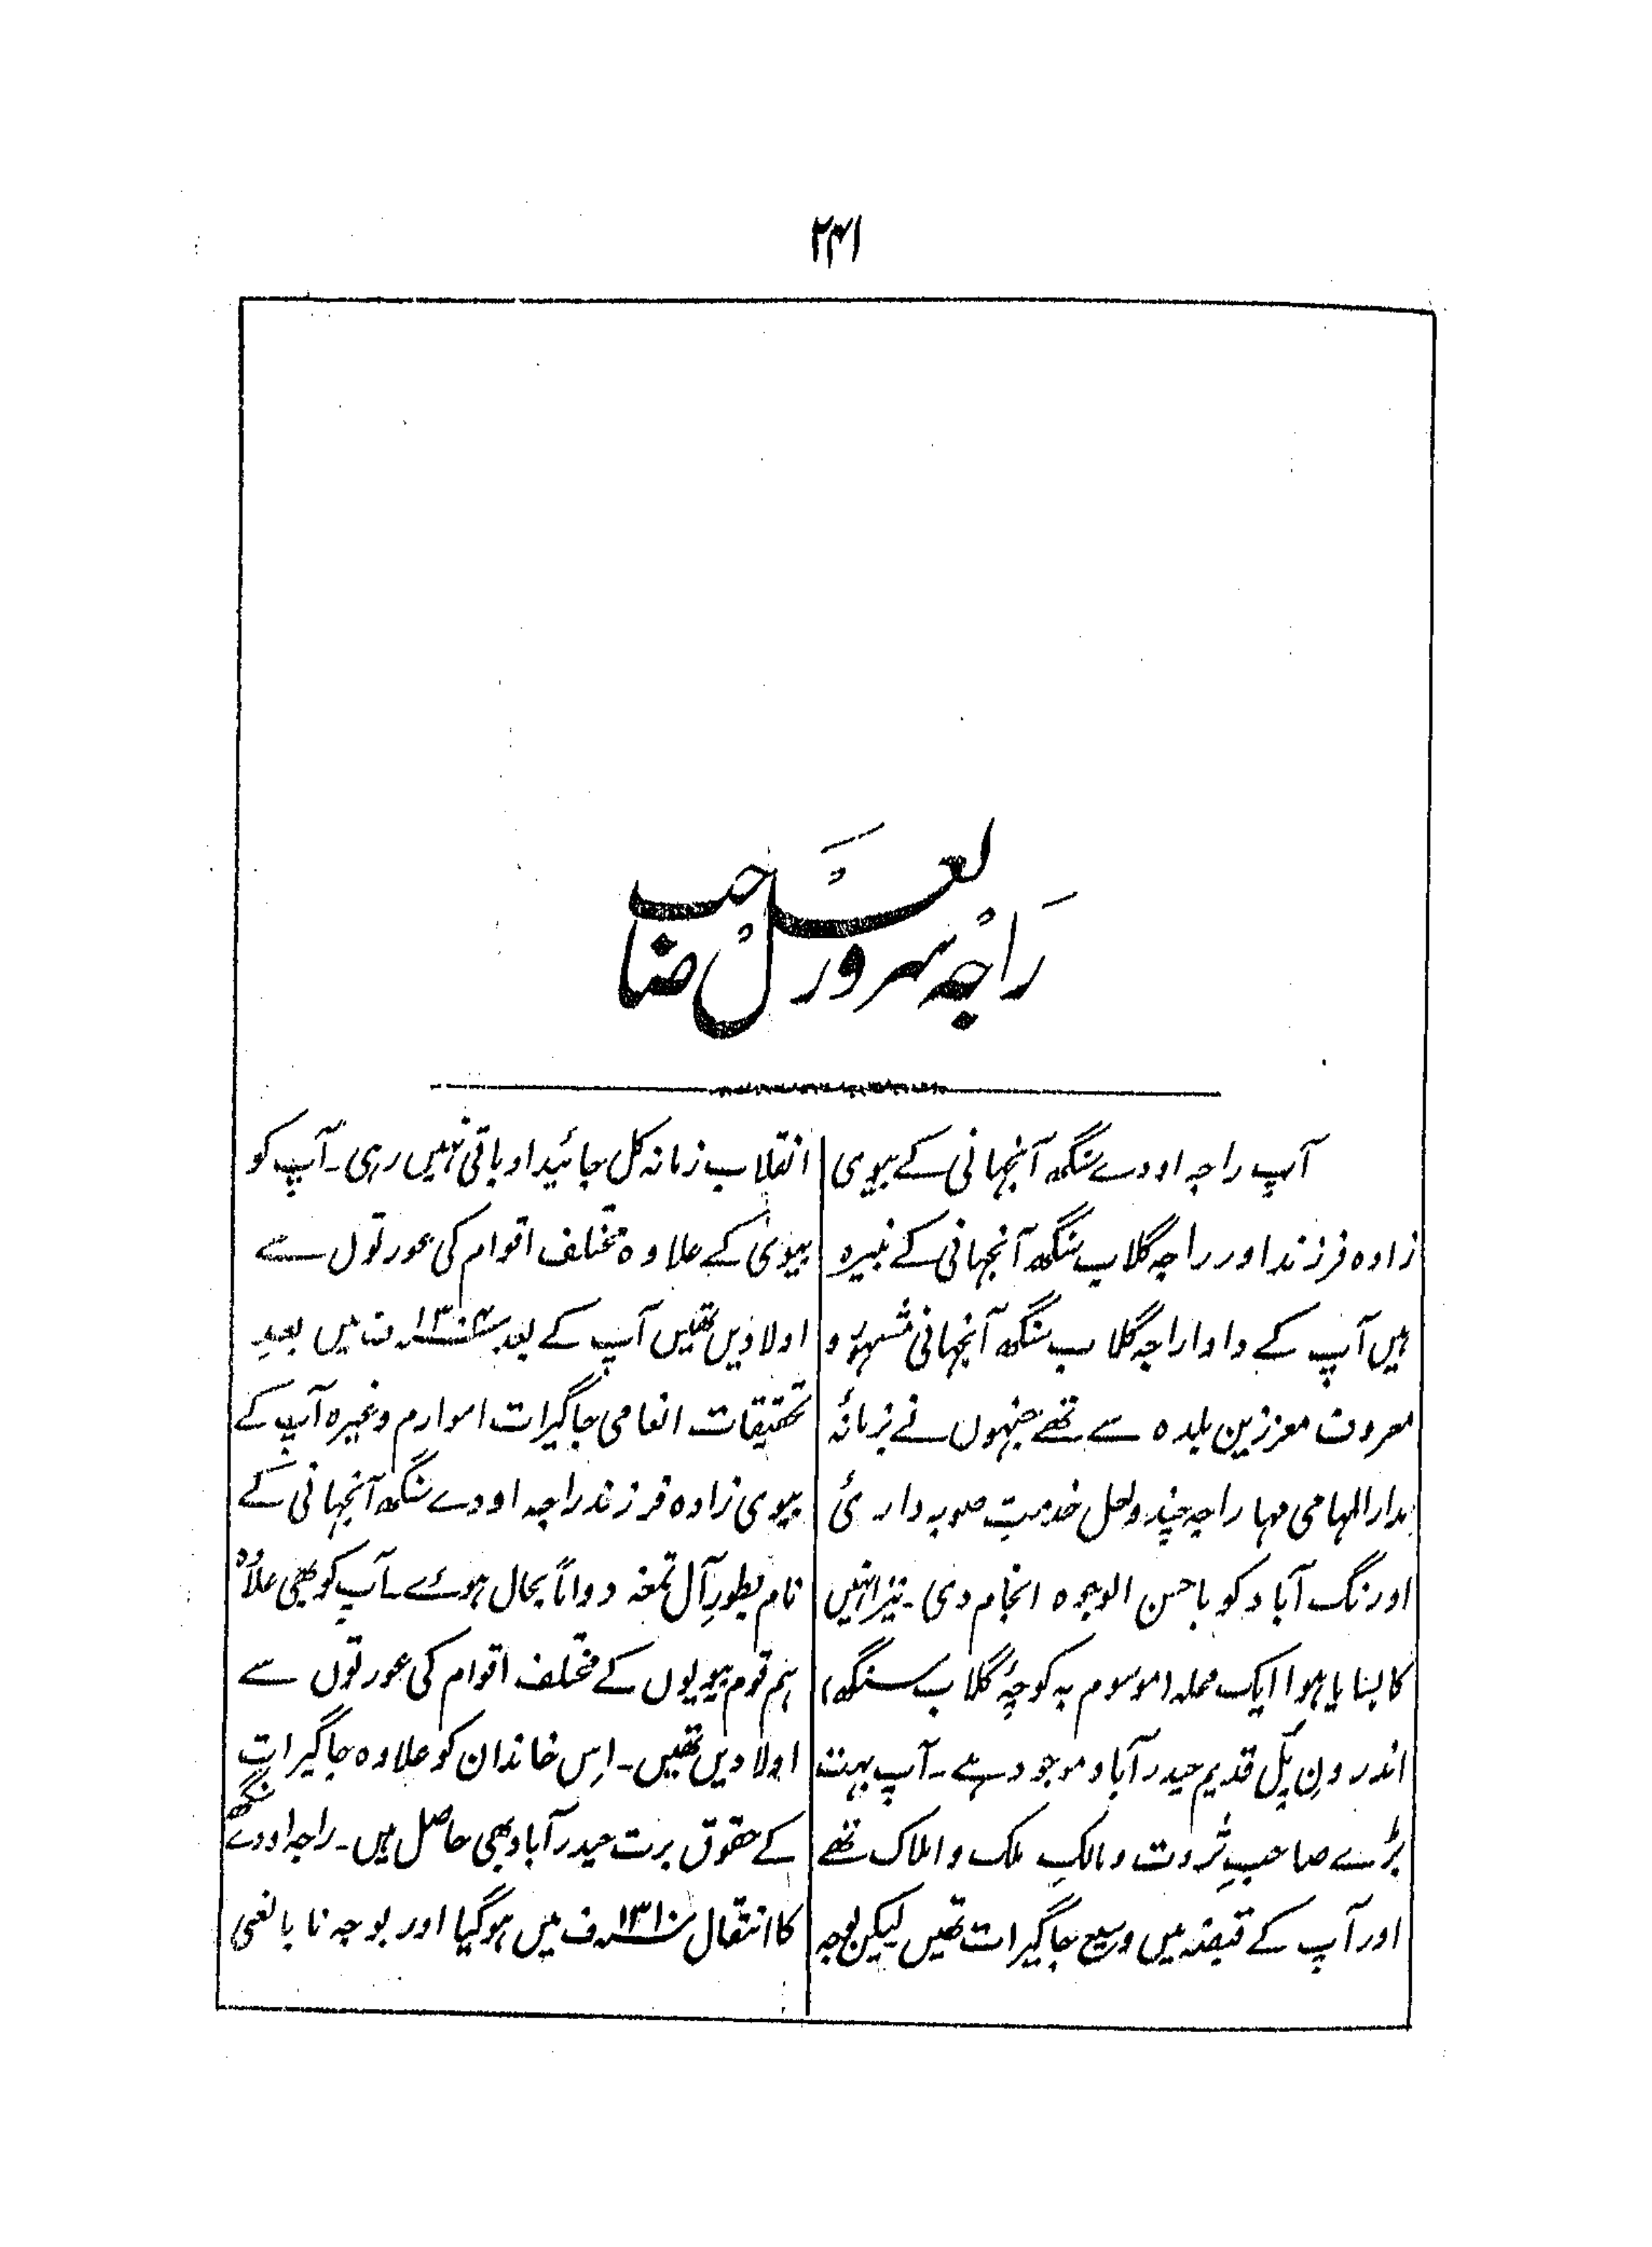 ۲۴۱
راجہ سرور لعل صاحب
آپ راجہ اودے سنگھ آنجہانی کے بیوی
زادہ فرزند اور راجہ گلاب سنگھ آنجہانی کے نبیرہ
ہیں آپ کے دادا راجہ گلاب سنگھ آنجہانی مشہور و
معروف معززین بلدہ سے تھے جنہوں نے بزمانۂ
مدارالمہامی مہاراجہ چندولعل خدمتِ صوبہ داریٔ
اورنگ آباد کو باحسن الوجوہ انجام دی۔ نیز انہیں
کا بسایا ہوا ایک محلہ (موسوم بہ کوچۂ گلاب سنگھ)
اندرونِ پل قدیم حیدرآباد موجود ہے۔ آپ بہت
بڑے صاحبِ ثروت و مالکِ ملک و املاک تھے
اور آپ کے قبضہ میں وسیع جاگیرات تھیں لیکن بوجہ
انقلاب زمانہ کل جائیداد باقی نہیں رہی۔ آپ کو
بیوی کے علاوہ مختلف اقوام کی عورتوں سے
اولادیں تھیں آپ کے بعد ۱۳۰۴ ف میں بعدِ
تحقیقات انعامی جاگیرات اموارم وغیرہ آپ کے
بیوی زادہ فرزند راجہ اودے سنگھ آنجہانی کے
نام بطورِ آل تمغہ دواماً بحال ہوئے۔ آپ کو بھی علاوہ
ہم قوم بیویوں کے مختلف اقوام کی عورتوں سے
اولادیں تھیں۔ اِس خاندان کو علاوہ جاگیرات
کے حقوق برت حیدرآباد بھی حاصل ہیں۔ راجہ اودے سنگھ
کا انتقال ۱۳۱۰ ف میں ہوگیا اور بوجہ نابالغی